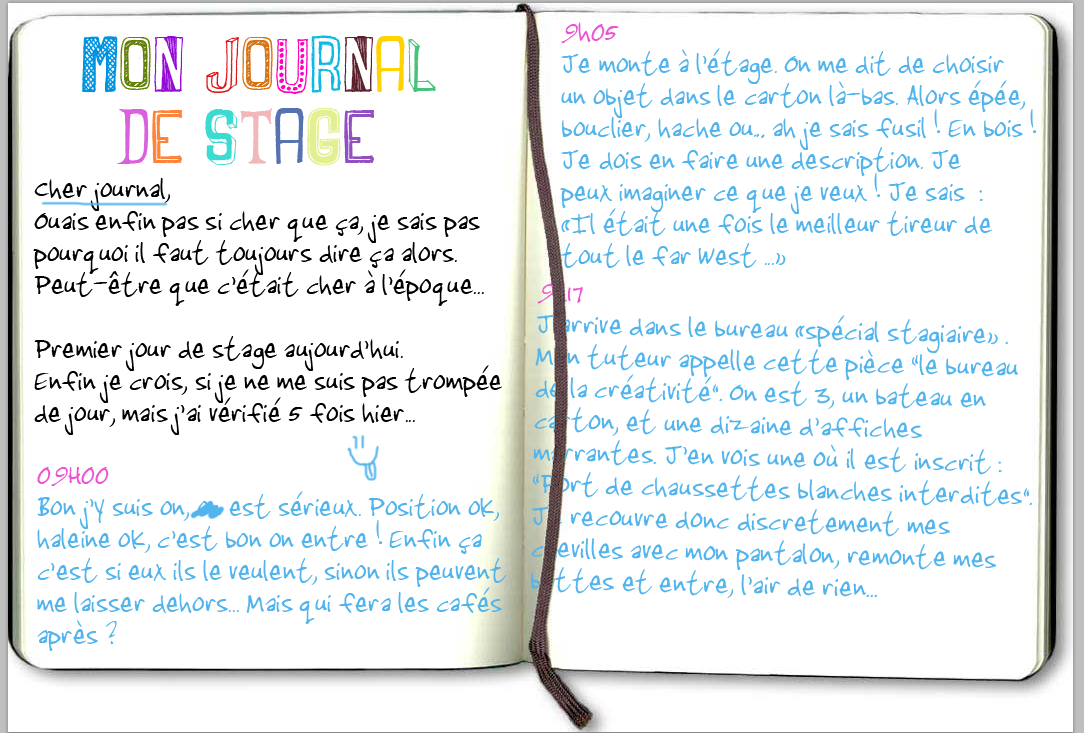 MON JOURNAL
DE STAGE
Cher journal,
Ouais enfin pas si cher que ça, je sais pas
pourquoi il faut toujours dire ça alors.
Peut-être que c'était cher à l'époque...
Premier jour de stage aujourd'hui.
Enfin je crois, si je ne me suis pas trompée
de jour, mais j'ai vérifié 5 fois hier...
09H00
Bon j'y suis on, est sérieux. Position ok,
haleine ok, c'est bon on entre ! Enfin ça
c'est si eux ils le veulent, sinon ils peuvent
me laisser dehors... Mais qui fera les cafés
après ?
9h05
Je monte à l'étage. On me dit de choisir
un objet dans le carton là-bas. Alors épée,
bouclier, hache ou.. ah je sais fusil ! En bois !
Je dois en faire une description. Je
peux imaginer ce que je veux ! Je sais :
«Il était une fois le meilleur tireur de
tout le far West ...»
9h17
J'arrive dans le bureau «spécial stagiaire» .
Mon tuteur appelle cette pièce "le bureau
de la créativité". On est 3, un bateau en
carton, et une dizaine d'affiches
marrantes. J'en vois une où il est inscrit :
"Port de chaussettes blanches interdites".
Je recouvre donc discretement mes
chevilles avec mon pantalon, remonte mes
bottes et entre, l'air de rien...